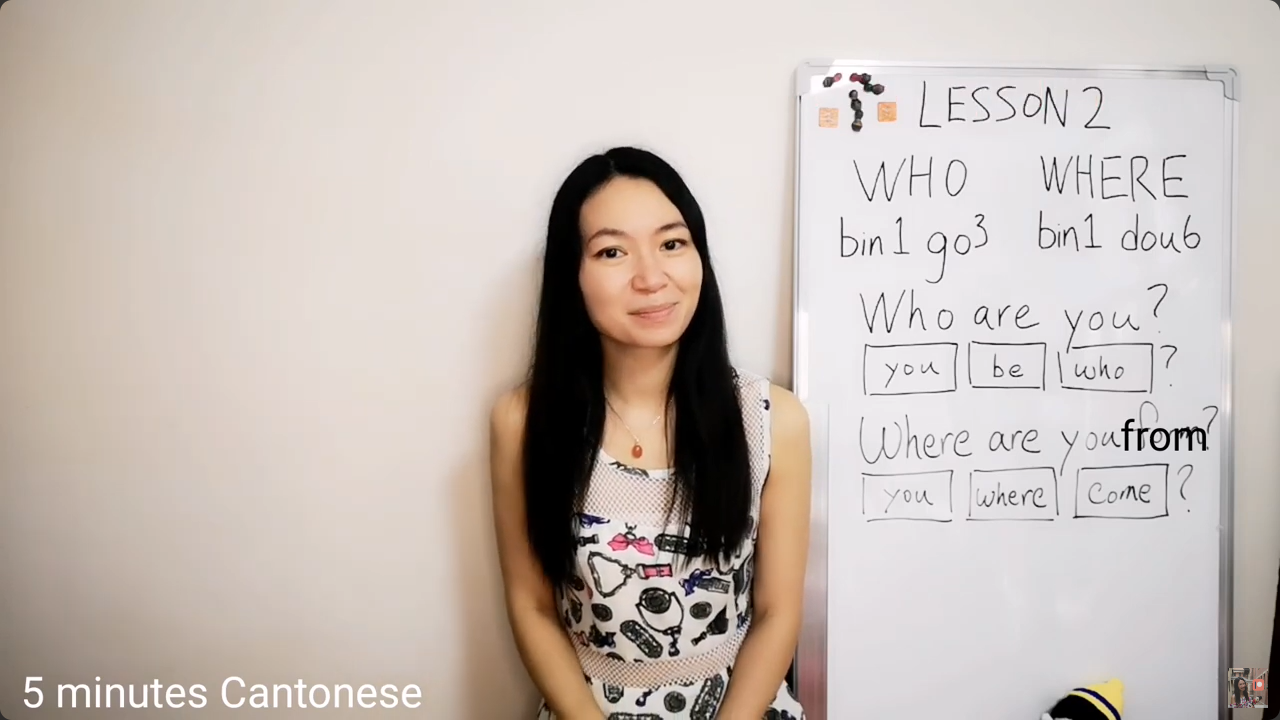 LESSON 2
WHO WHERE
bin1 go3 bin1 dou6
Who are you?
you be who ?
Where are you from?
you where come ?
5 minutes Cantonese